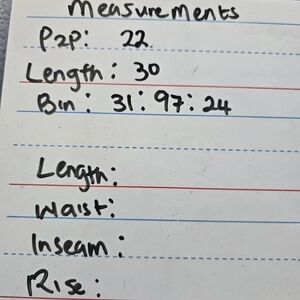 Measurements
P2P: 22
Length: 30
Bin: 31:97:24
Length:
Waist:
Inseam:
Rise: